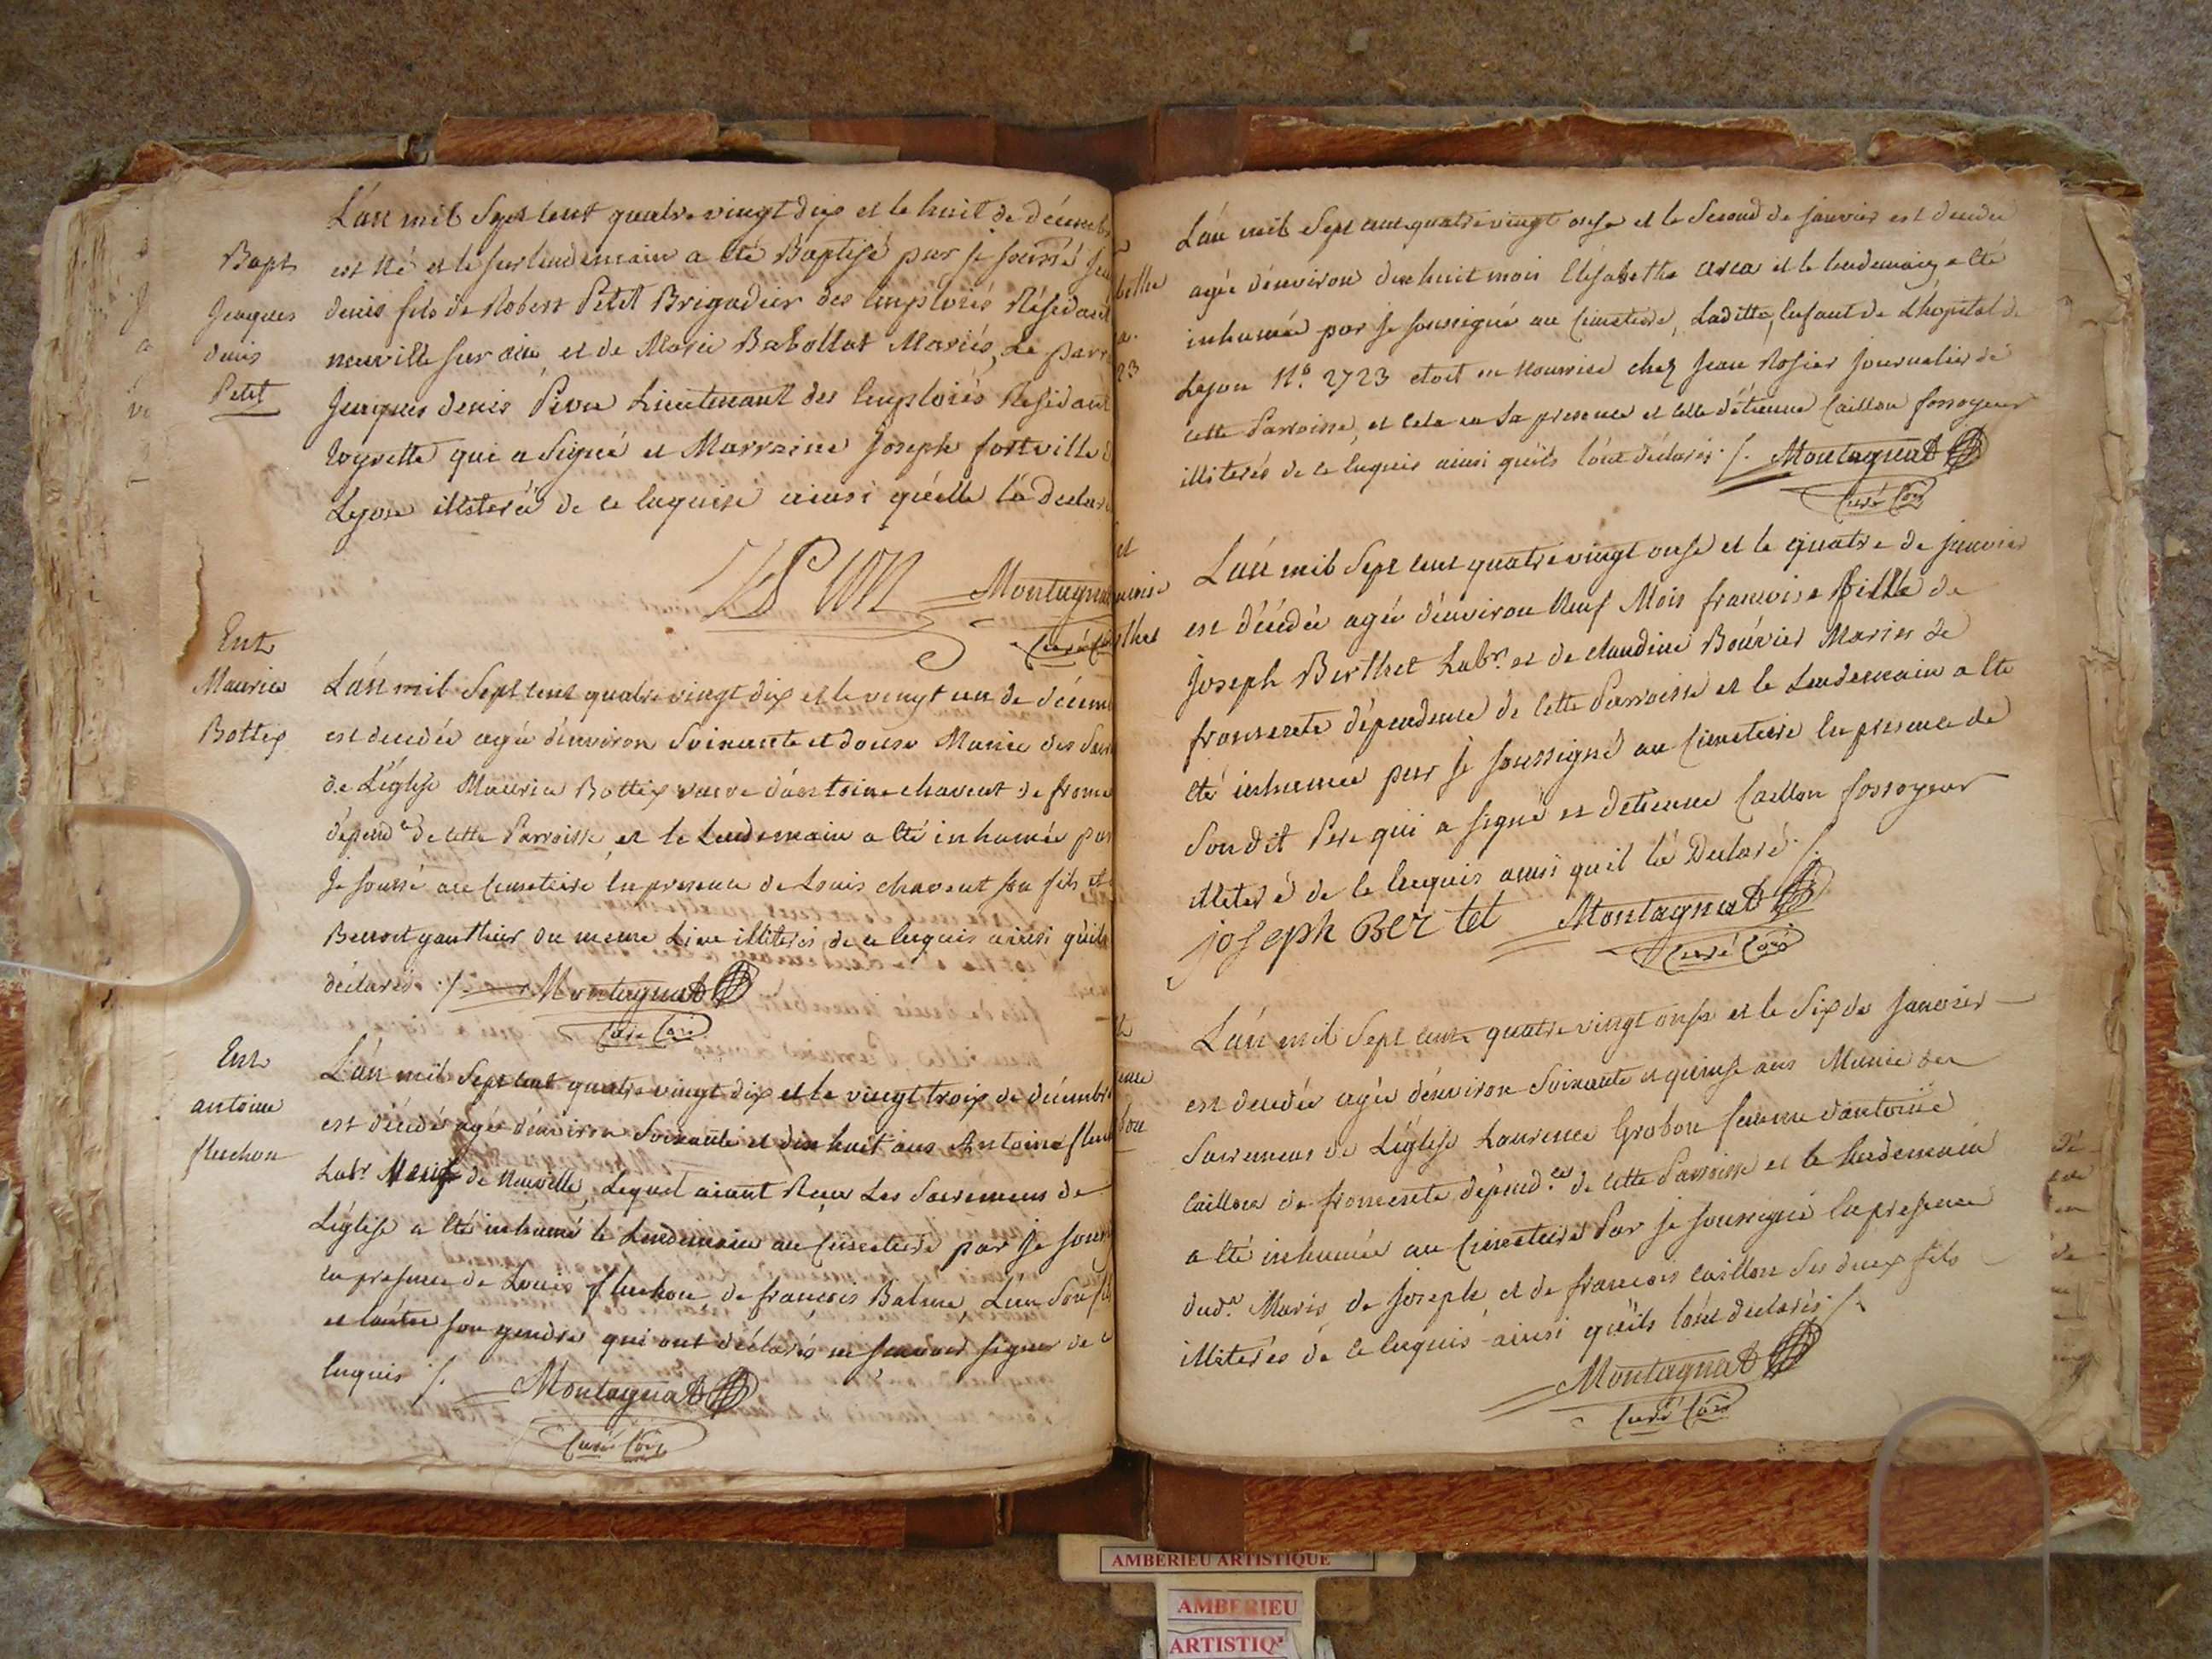 L'an mil Sept cent quatre vingt dix et le huit de décemb
Bapt
Jacques
denis
Petit
est Né et le surlendemain a eté Baptisé par je sousné
denis fils de Robert Petit Brigadier des Emploiés Résidant
neuville sur ain, et de Marie Babollat Mariés, Le parr
Jacques denis Pivn Lieutenant des Emploiés Residant
qui a signé et Marraine Joseph fortville
Lyon illiterée de ce enquise ainsi qu'elle l'a declaré
Montagnat
Curé
Ent
Maurice
Bottex
L'an mil Sept cent quatre vingt dix et le vingt un de décem
est decedée agée d'environ Soixante et douse Munie des Sacr
de L'église Maurice Bottex veuve d'antoine chavent de from
dépend.ce de cette Parroisse et le Lendemain a eté inhumée par
Je sousné au Cimetiere En presence de Louis chavent son fils et
Benoit gauthier du meme Lieu illiterés de ce Enquis ainsi qu'ils
déclarés ./. Montagnat
Curé
Ent
antoine
fluchon
L'an mil Sept cent quatre vingt dix et le vingt troix de décembre
est décédé agé d'environ Soixante et dix huit ans Antoine fluch
Labr de Neuville, Lequel aiant Recu Les Sacremens de
L'église a eté inhumé le Lendemain au Cimetiere par Je sous
en presence de Louis fluchon, de francois Balme, L'un son fils
et l'autre son gendre qui ont déclarés ne scavoir signer de ce
Enquis ./. Montagnat
Curé
L'an mil Sept cent quatre vingt onse et le Second de janvier est decedée
agée d'environ dix huit mois Elisabeth area et le lendemain a eté
inhumée par je soussigné au Cimetiere, Laditte, Enfant de L'hopital de
Lyon N.o 2723 etoit en Nourrice chez Jean Rosier journalier de
cette Parroisse, et cela en sa presence et celle d'étienne Caillon fossoyeur
illiterés de ce Enquis ainsi qu'ils l'ont déclarés ./. Montagnat
Curé
L'an mil Sept cent quatre vingt onse et le quatre de janvier
est décédée agée d'environ Neuf Mois francoise fille de
Joseph Berthet Labr. et de claudine Bouvier Mariés de
fromente dépendence de cette Parroisse et le Lendemain a eté
eté inhumée par je soussigné au Cimetiere En presence de
Son dit Pere qui a signé et detienne Caillon fossoyeur
illiteré de ce Enquis ainsi qu'il l'a Declaré ./.
joseph Ber tet Montagnat
Curé
L'an mil Sept cent quatre vingt onse et le Six de Janvier
est decedée agée d'environ Soixante et quinse ans Munie des
Sacremens de L'église Laurence Grobon femme d'antoine
Caillon de fromente dépend.ce de cette Parroisse et le Lendemain
a eté inhumée au Cimetiere Par je soussigné En presence
dud.t Maris, de Joseph et de francois Caillon ses deux fils
illiterés de ce Enquis ainsi qu'ils l'ont declarés ./.
Montagnat
Curé
AMBERIEU ARTISTIQUE
AMBERIEU
ARTISTIQ